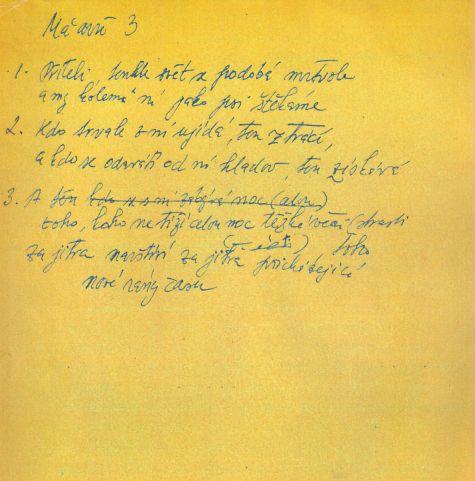 Má'arrí 3
1. Příteli, tenhle svět se podobá mrtvole
a my kolem ní jako psi štěkáme
2. Kdo trvale z ní ujídá, ten ztrácí,
a kdo se odvrátí od ní hladov, ten získává
3. A ten kdo se s ní zabývá noc (celou)
toho, koho netíží celou noc těžké strasti
za jitra navštíví za jitra přicházející toho
nové rány času